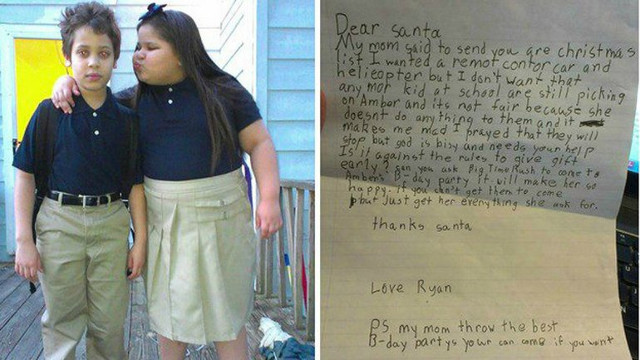 Dear santa
My mom said to send you are christmas
list I wanted a remot contor car and
helicopter but I don't want that
any mor kid at school are still picking
on Amber and its not fair because she
doesnt do anything to them and it
makes me mad I prayed that they will
stop but god is bisy and needs your help
Is it against the rules to give gift
early? Can you ask Big Time Rush to come to
Amber's B-day party it will make her so
happy. if you can't get them to come
but Just get her everything she ask for.
thanks santa
Love Ryan
PS my mom throw the best
B-day partys your can come if you want